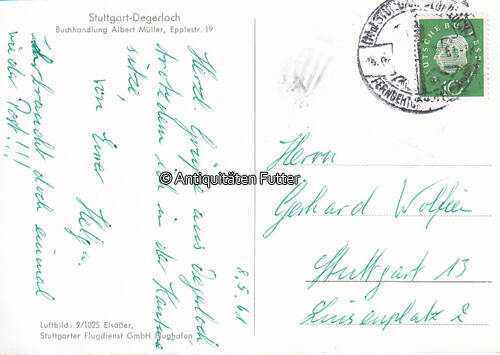 Stuttgart-Degerloch
Buchhandlung Albert Müller, Epplestr. 19
8.5.61
Herzl. Grüße aus Degerloch,
trotzdem ich in der Kantine
sitze,
von Eurer Helga.
Ihr braucht doch einmal
wieder Post!!!
Luftbild: 9/1025 Elsäßer,
Stuttgarter Flugdienst GmbH Flughafen
Herrn
Gerhard
Stuttgart 13
Luisenplatz 2
DEUTSCHE BUNDESPOST
STUTTGART
FERNSEHTURM
© Antiquitäten Futter